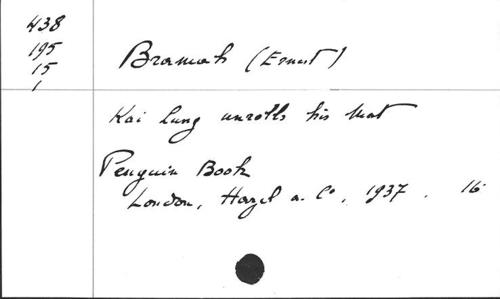 438
195
15
1
Bramah (Ernest)
Kai Lung unrolls his Mat
Penguin Book
London, Hazel a. Co, 1937. 16